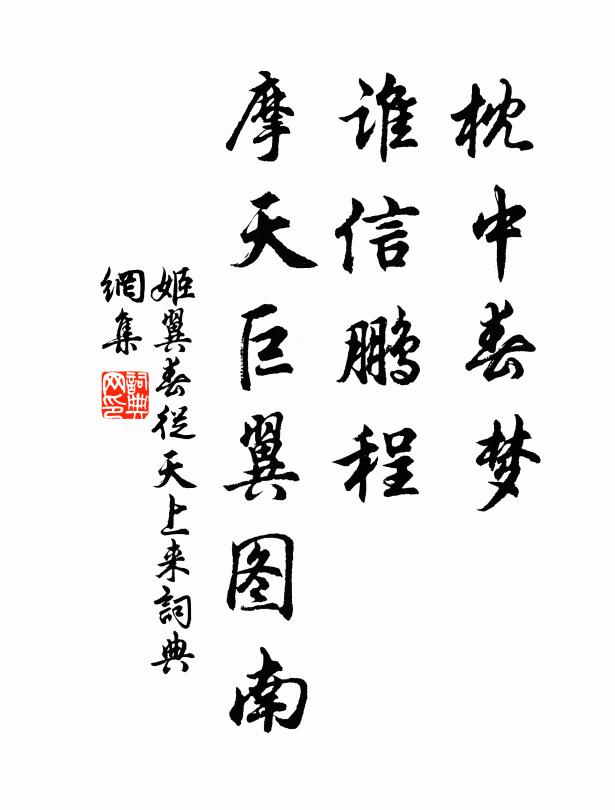 枕中春梦
谁信鹏程
摩天巨翼图南
姬翼春從天上来詞典
網集
詞典
网印